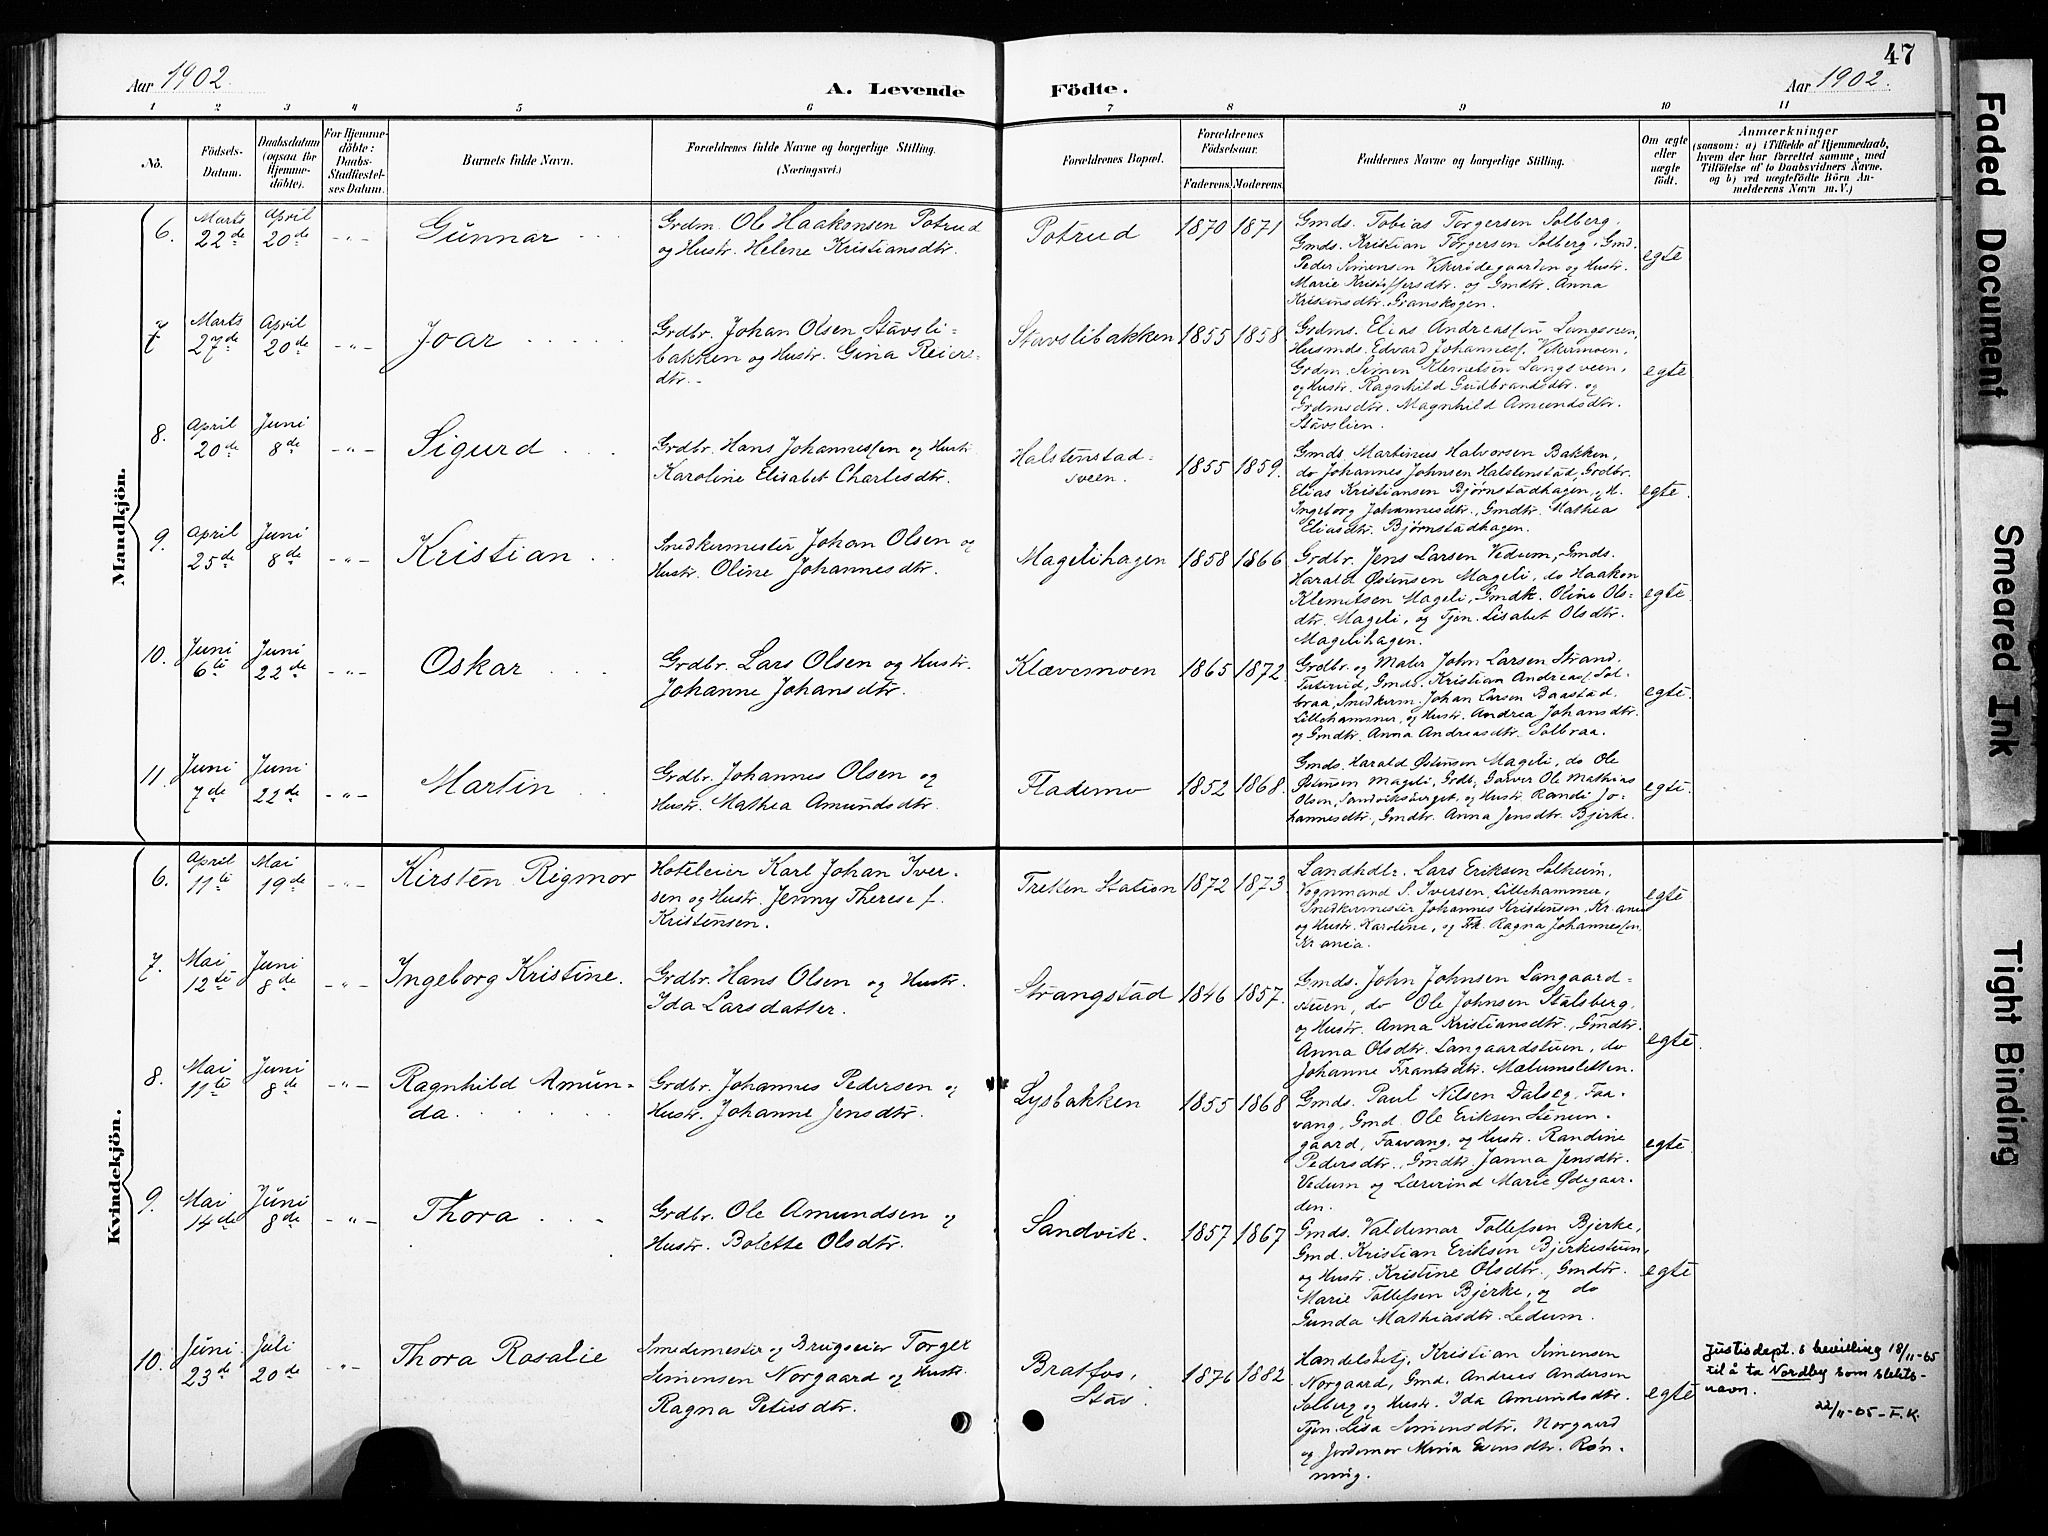 47
Aar 1902.
A. Levende
Födte.
Aar 1902.
1 2 3 4 5 6 7 8 9 10 11
No.
Födsels-
Datum.
Daabsdatum
(ogsaa for
Hjemme-
döbte).
For Hjemme-
döbte:
Daabs-
Stadfæstel-
ses Datum.
Barnets fulde Navn.
Forældrenes fulde Navne og borgerlige Stilling.
(Næringsvei.)
Forældrenes Bopæl.
Forældrenes
Födselsaar.
Faderens. Moderens.
Faddernes Navne og borgerlige Stilling.
Om ægte
eller
uægte
födt.
Anmærkninger
(saasom: a) i Tilfælde af Hjemmedaab,
hvem der har forrettet samme, med
Tilföielse af to Daabsvidners Navne,
og b) ved uægtefödte Börn An-
melderens Navn m. V.)
Mandkjön.
6. Marts 22de April 20de -"- Gunnar
Grdm. Ole Haakonsen Potrud
og Hustr. Helene Kristiansdtr.
Potrud 1870 1871
Gmds. Tobias Torgersen Solberg,
Gmds. Kristian Torgersen Solberg, Gmd.
Peder Simensen Vikerødegaarden og Hustr.
Marie Kristoffersdtr. og Gmdtr. Anna
Kristinsdtr. Granskogen.
egte
7 Marts 27de April 20de -"- Joar
Grdbr. Johan Olsen Stavsli-
bakken og Hustr. Gina Reiers-
dtr.
Stavslibakken 1855 1858
Grdms. Elias Andreassen Langsveen,
Husmds. Edvard Johannes. Vikermoen,
Grdm. Simen Klemetsen Langsveen,
og Hustr. Ragnhild Gudbrandsdtr. og
Grdmsdtr. Magnhild Amundsdtr.
Stavslien.
egte
8. April 20de Juni 8de -"- Sigurd
Grdbr. Hans Johannessen og Hustr.
Karoline Elisabet Charlesdtr.
Halstenstad-
sveen. 1855 1859.
Gmds. Martinus Halvorsen Bakken,
do Johannes Johnsen Halstenstad, Grdbr.
Elias Kristiansen Bjørnstadhagen, og H.
Ingeborg Johannesdtr., Gmdtr. Mathea
Eliasdtr. Bjørnstadhagen.
egte.
9. April 25de Juni 8de -"- Kristian
Snedkermester Johan Olsen og
Hustr. Oline Johannesdtr.
Magelihagen 1858 1866
Grdbr. Jens Larsen Vedum, Gmds.
Harald Østensen Mageli, do Haakon
Klemetsen Mageli, Gmdk. Oline Ols-
dtr. Mageli, og Tjen. Lisabet Olsdtr.
Magelihagen.
egte.
10. Juni 6te Juni 22de -"- Oskar
Grdbr. Lars Olsen og Hustr.
Johanne Johansdtr.
Klævemoen 1865 1872.
Grdbr. og Maler John Larsen Strand
Gmds. Kristian Andreas. Sol-
braa, Snedkerm. Johan Larsen Baastad
Lillehammer, og Hustr. Andrea Johansdtr.
og Gmdtr. Anna Andreasdtr. Solbraa.
egte.
11. Juni 7de Juni 22de -"- Martin
Grdbr. Johannes Olsen og
Hustr. Mathea Amundsdtr.
Flademo 1852 1868.
Gmds. Harald Østensen Mageli, do Ole
Østensen Mageli, Grdb., Garver Ole Mathias
Olsen, Sandviksberget, og Hustr. Randi Jo-
hannesdtr., Gmdtr. Anna Jensdtr. Bjerke.
egte.
Kvindekjön.
6. April 11te Mai 19de -"- Kirsten Rigmor
Hoteleier Karl Johan Iver-
sen og Hustr. Jenny Therese f.
Kristensen.
Tretten Station 1872 1873
Landhdlr. Lars Eriksen Solheim,
Vognmand S. Iversen, Lillehammer,
Snedkermester Johannes Kristensen, Kr.ania
og Hustr. Karoline, og Frk. Ragna Johannessen,
Kr.ania.
egte
7. Mai 12te Juni 8de -"- Ingeborg Kristine.
Grdbr. Hans Olsen og Hustr.
Ida Larsdatter.
Strangstad 1846 1857.
Gmds. John Johnsen Langaard-
stuen, do Ole Johnsen Stalsberg,
og Hustr. Anna Kristiansdtr., Gmdtr.
Anna Olsdtr. Langaardstuen, do
Johanne Frantsdtr. Mælumsletten.
egte.
8. Mai 11te Juni 8de -"- Ragnhild Amun-
da.
Grdbr. Johannes Pedersen og
Hustr. Johanne Jensdtr.
Lysbakken 1855 1868
Gmds. Paul Nilsen Dalseg, Faa-
vang, Gmd. Ole Eriksen Stenum-
gaard, Faavang, og Hustr. Randine
Pedersdtr., Gmdtr. Janna Jensdtr.
Vedum og Lærerind Marie Ødegaar-
den.
egte.
9. Mai 14de Juni 8de -"- Thora
Grdbr. Ole Amundsen og
Hustr. Bolette Olsdtr.
Sandvik. 1857 1867
Gmds. Valdemar Tollefsen Bjerke,
Gmd. Kristian Eriksen Bjerkestuen,
og Hustr. Kristine Olsdtr., Gmdtr.
Marie Tollefsen Bjerke, og do
Gunda Mathiasdtr. Ledum.
egte
10. Juni 23de Juli 20de -"- Thora Rosalie
Smedemester og Brugseier Torger
Simensen Norgaard og Hustr.
Ragna Petersdtr.
Bratfos,
Stav 1876 1882
Handelsbetj. Kristian Simensen
Norgaard, Gmd. Andreas Andersen
Solberg og Hustr. Ida Amundsdtr.
Tjen. Lisa Simensdtr. Norgaard
og Jordemor Maria Evensdtr. Røn-
ning.
egte
Justisdept.s bevilling 18/11-65
til å ta Nordby som slekts-
navn.
22/11-65-F.K.
Faded Document
Smeared Ink
Tight Binding